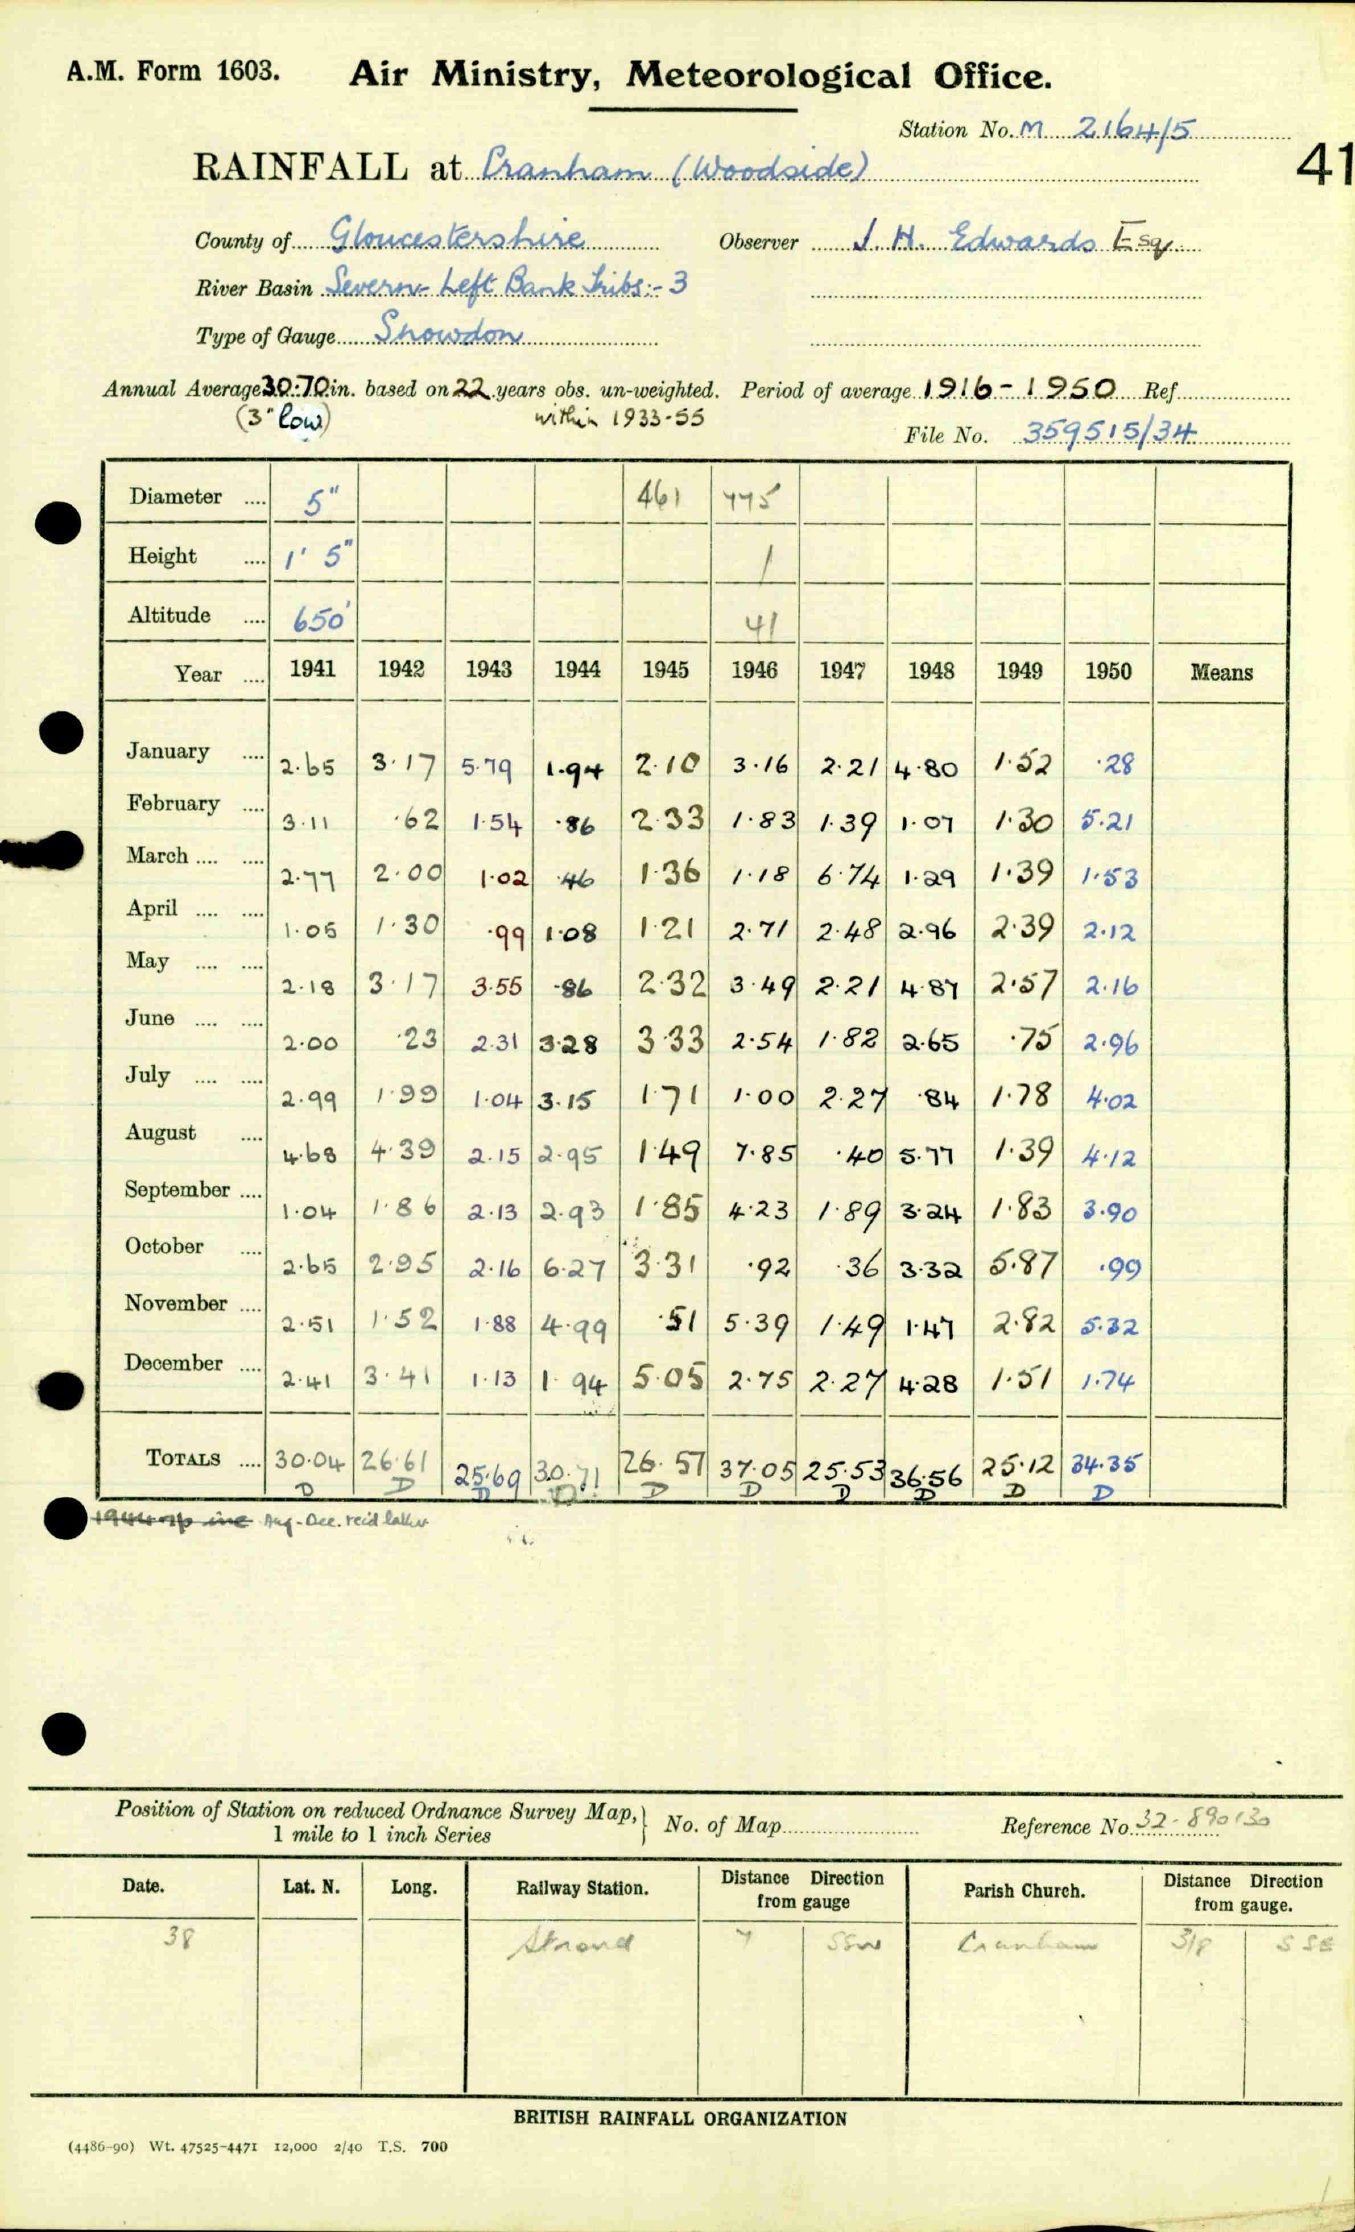 A.M. Form 1603. Air Ministry, Meteorological Office.
Station No. M 2164/5
41
RAINFALL at Cranham (Woodside)
County of Gloucestershire Observer J. H. Edwards Esq
River Basin Severn - Left Bank Tribs:- 3
Type of Gauge Snowdon
Annual Average 30.70 in. based on 22 years obs. un-weighted. Period of average 1916-1950 Ref.
(3" low) within 1933-55
File No. 359515/34
Diameter .... 5" 461 775
Height .... 1' 5" 1
Altitude .... 650' 41
Year .... 1941 1942 1943 1944 1945 1946 1947 1948 1949 1950 Means
January .... 2.65 3.17 5.79 1.94 2.10 3.16 2.21 4.80 1.52 .28
February .... 3.11 .62 1.54 .86 2.33 1.83 1.39 1.07 1.30 5.21
March .... .... 2.77 2.00 1.02 .46 1.36 1.18 6.74 1.29 1.39 1.53
April .... .... 1.05 1.30 .99 1.08 1.21 2.71 2.48 2.96 2.39 2.12
May .... .... 2.18 3.17 3.55 .86 2.32 3.49 2.21 4.87 2.57 2.16
June .... .... 2.00 .23 2.31 3.28 3.33 2.54 1.82 2.65 .75 2.96
July .... .... 2.99 1.99 1.04 3.15 1.71 1.00 2.27 .84 1.78 4.02
August .... 4.68 4.39 2.15 2.95 1.49 7.85 .40 5.77 1.39 4.12
September .... 1.04 1.86 2.13 2.93 1.85 4.23 1.89 3.24 1.83 3.90
October .... 2.65 2.95 2.16 6.27 3.31 .92 .36 3.32 5.87 .99
November .... 2.51 1.52 1.88 4.99 .51 5.39 1.49 1.47 2.82 5.32
December .... 2.41 3.41 1.13 1.94 5.05 2.75 2.27 4.28 1.51 1.74
TOTALS .... 30.04 26.61 25.69 30.71 26.57 37.05 25.53 36.56 25.12 34.35
D D D D D D D D D D
Aug-Dec. rec'd later
Position of Station on reduced Ordnance Survey Map, 1 mile to 1 inch Series } No. of Map Reference No. 32-890130
Date. Lat. N. Long. Railway Station. Distance Direction from gauge Parish Church. Distance Direction from gauge.
38 Stroud 7 SSW Cranham 3/8 SSE
BRITISH RAINFALL ORGANIZATION
(4486-90) Wt. 47525-4471 12,000 2/40 T.S. 700